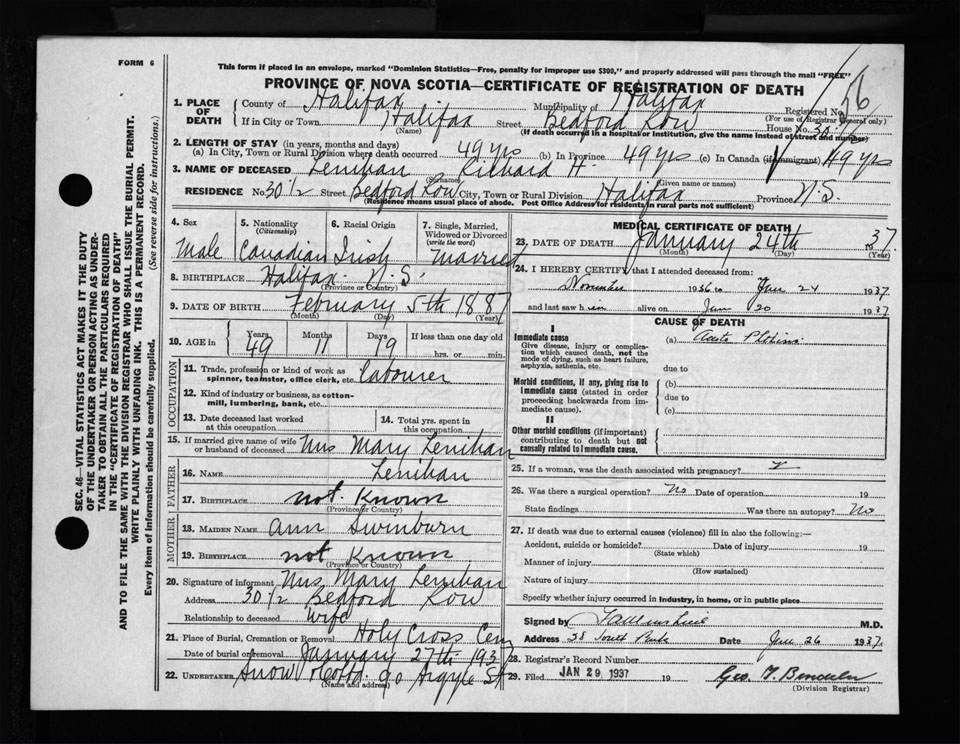 FORM 6
This form if placed in an envelope, marked "Dominion Statistics—Free, penalty for improper use $300," and properly addressed will pass through the mail "FREE"
PROVINCE OF NOVA SCOTIA—CERTIFICATE OF REGISTRATION OF DEATH
1. PLACE OF DEATH
County of Halifax Municipality of Halifax Registered No. 56
(For use of Registrar General only)
If in City or Town Halifax Street Bedford Row House No. 30 1/2
(Name) (If death occurred in a hospital or institution, give the name instead of street and number)
2. LENGTH OF STAY (in years, months and days)
(a) In City, Town or Rural Division where death occurred 49 yrs (b) In Province 49 yrs (c) In Canada (if immigrant) 49 yrs
3. NAME OF DECEASED Lenihan Richard H
(Surname) (Given name or names)
RESIDENCE No. 30 1/2 Street Bedford Row City, Town or Rural Division Halifax Province N.S.
(Residence means usual place of abode. Post Office Address for residents in rural parts not sufficient)
4. Sex Male
5. Nationality (Citizenship) Canadian
6. Racial Origin Irish
7. Single, Married, Widowed or Divorced (write the word) Married
8. BIRTHPLACE Halifax N.S.
(Province or Country)
9. DATE OF BIRTH February 5th 1887
(Month) (Day) (Year)
10. AGE in Years 49 Months 11 Days 19 If less than one day old
hrs. or min.
OCCUPATION
11. Trade, profession or kind of work as spinner, teamster, office clerk, etc. labourer
12. Kind of industry or business, as cotton-mill, lumbering, bank, etc.
13. Date deceased last worked at this occupation
14. Total yrs. spent in this occupation
15. If married give name of wife or husband of deceased Mrs Mary Lenihan
FATHER
16. NAME Lenihan
17. BIRTHPLACE not Known
(Province or Country)
MOTHER
18. MAIDEN NAME Ann Swinburn
19. BIRTHPLACE not Known
(Province or Country)
20. Signature of informant Mrs Mary Lenihan
Address 30 1/2 Bedford Row
Relationship to deceased wife
21. Place of Burial, Cremation or Removal Holy Cross Cem
Date of burial or removal January 27th 1937
22. UNDERTAKER Snow & Co Ltd. 90 Argyle St
(Name and address)
MEDICAL CERTIFICATE OF DEATH
23. DATE OF DEATH January 24th 1937
(Month) (Day) (Year)
24. I HEREBY CERTIFY that I attended deceased from:
November 1936 to Jan 24 1937
and last saw him alive on Jan 20 1937
CAUSE OF DEATH
I
Immediate cause
Give disease, injury or complication which caused death, not the mode of dying, such as heart failure, asphyxia, asthenia, etc.
(a) Acute
due to
Morbid conditions, if any, giving rise to immediate cause (stated in order proceeding backwards from immediate cause).
(b)
due to
(c)
II
Other morbid conditions (if important) contributing to death but not causally related to immediate cause.
25. If a woman, was the death associated with pregnancy?
26. Was there a surgical operation? No Date of operation 19
State findings Was there an autopsy? No
27. If death was due to external causes (violence) fill in also the following:—
Accident, suicide or homicide? Date of injury 19
(State which)
Manner of injury
(How sustained)
Nature of injury
Specify whether injury occurred in industry, in home, or in public place
Signed by M.D.
Address Date Jan 26 1937.
28. Registrar's Record Number
29. Filed JAN 29 1937 19 Geo.
(Division Registrar)
SEC. 46—VITAL STATISTICS ACT MAKES IT THE DUTY
OF THE UNDERTAKER OR PERSON ACTING AS UNDER-
TAKER TO OBTAIN ALL THE PARTICULARS REQUIRED
IN THE "CERTIFICATE OF REGISTRATION OF DEATH"
AND TO FILE THE SAME WITH THE DIVISION REGISTRAR WHO SHALL ISSUE THE BURIAL PERMIT.
WRITE PLAINLY WITH UNFADING INK. THIS IS A PERMANENT RECORD.
Every item of information should be carefully supplied. (See reverse side for instructions.)